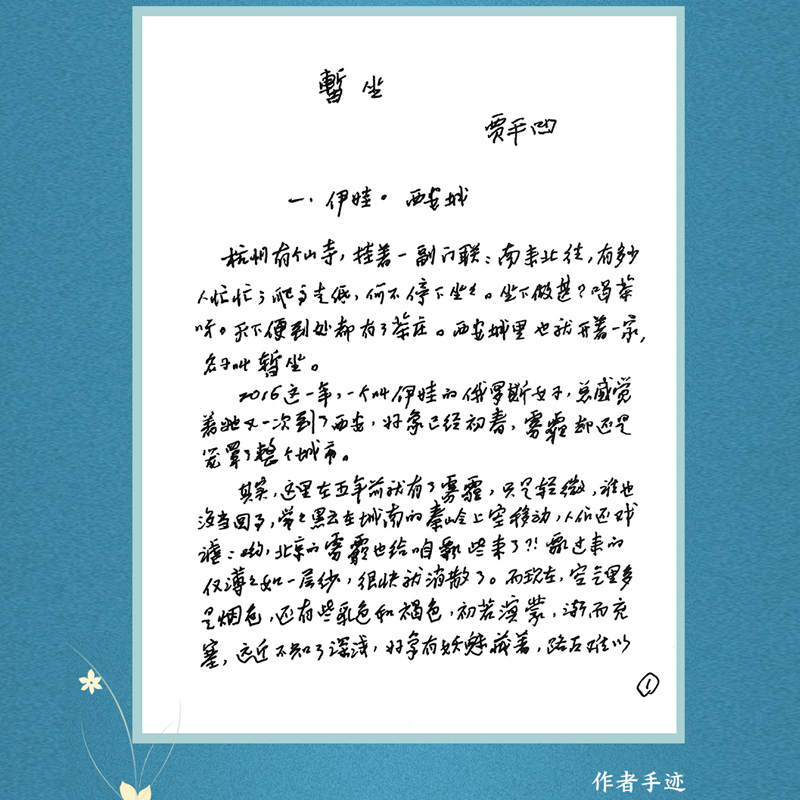 暂坐
贾平凹
一、伊娃。西安城
杭州有个山寺，挂着一副门联：南来北往，有多少
人忙忙；爬高走低，何不停下坐坐。坐下做甚？喝茶
呀。天下便到处都有了茶庄。西安城里也就开着一家，
名字叫暂坐。
2016这一年，一个叫伊娃的俄罗斯女子，总感觉
着她又一次到了西安，好象已经初春，雾霾却还是
笼罩了整个城市。
其实，这里在五年前就有了雾霾，只是轻微，谁也
没当回事，常常黑云在城南的秦岭上空移动，人们还戏
谑：哟，北京的雾霾也给咱飘些来了?! 飘过来的
仅薄薄如一层纱，很快就消散了。而现在，空气里多
是烟色，还有些乳色和褐色，初若溟蒙，渐而充
塞，远近不知了深浅，好象有妖魅藏着，路百难以
1
作者手迹